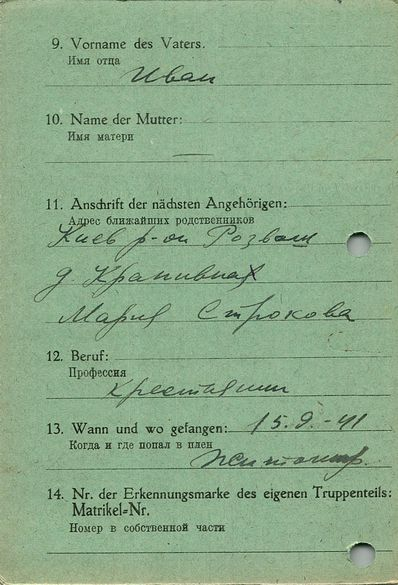 9. Vorname des Vaters.
Имя отца
Иван
10. Name der Mutter:
Имя матери
—
11. Anschrift der nächsten Angehörigen:
Адрес ближайших родственников
Киев р-он Розваж
д. Крапивная
Мария Строкова
12. Beruf:
Профессия
крестьянин
13. Wann und wo gefangen: 15.9.-41
Когда и где попал в плен
14. Nr. der Erkennungsmarke des eigenen Truppenteils:
Matrikel-Nr.
Номер в собственной части